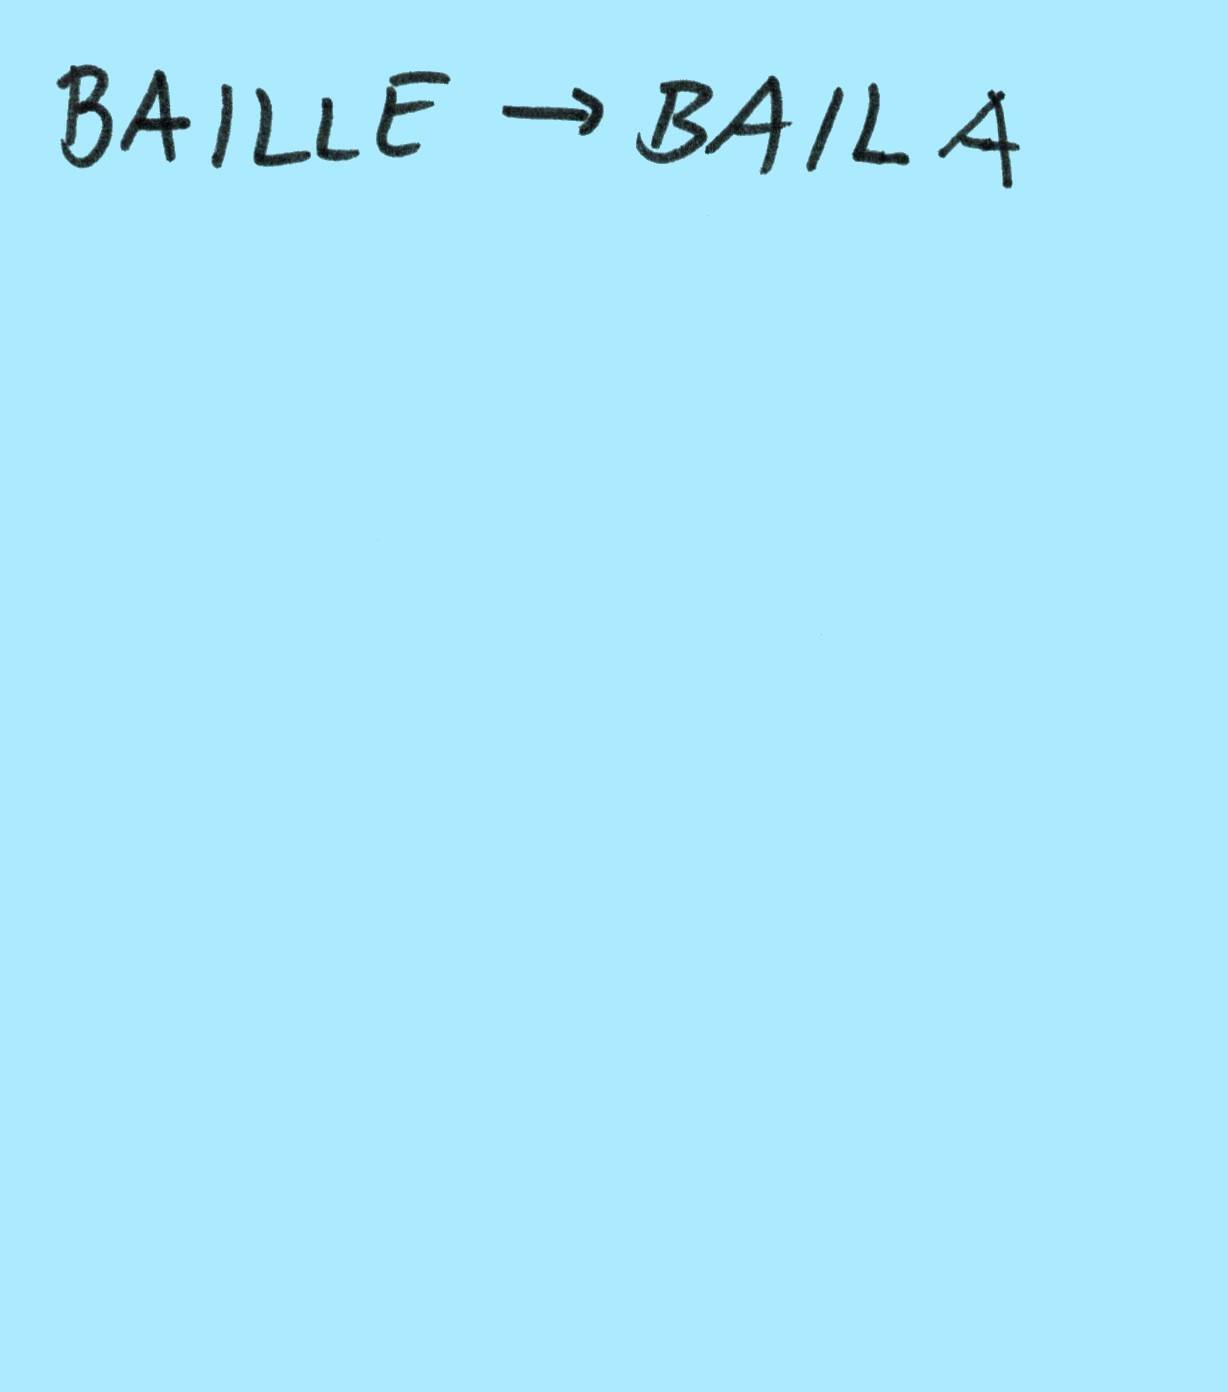 BAILLE → BAILA